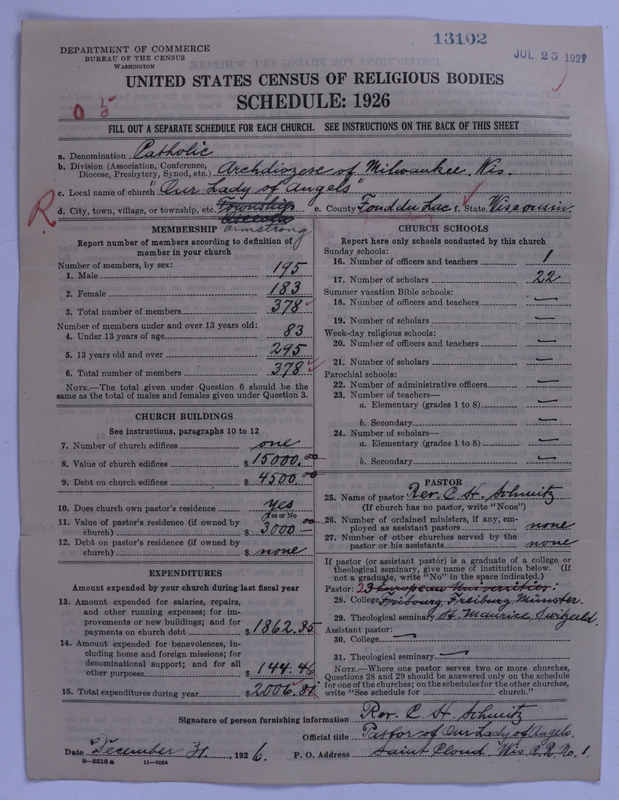 13102
JUL 25 1927
DEPARTMENT OF COMMERCE
BUREAU OF THE CENSUS
WASHINGTON
UNITED STATES CENSUS OF RELIGIOUS BODIES
SCHEDULE: 1926
FILL OUT A SEPARATE SCHEDULE FOR EACH CHURCH. SEE INSTRUCTIONS ON THE BACK OF THIS SHEET
a. Denomination Catholic
b. Division (Association, Conference, Diocese, Presbytery, Synod, etc.) Archdiozese of Milwaukee, Wis.
c. Local name of church "Our Lady of Angels"
d. City, town, village, or township, etc. Township Osceola Armstrong e. County Fond du Lac f. State Wisconsin.
MEMBERSHIP
Report number of members according to definition of member in your church
Number of members, by sex:
1. Male 195
2. Female 183
3. Total number of members 378
Number of members under and over 13 years old:
4. Under 13 years of age 83
5. 13 years old and over 295
6. Total number of members 378
NOTE.—The total given under Question 6 should be the same as the total of males and females given under Question 3.
CHURCH BUILDINGS
See instructions, paragraphs 10 to 12
7. Number of church edifices one
8. Value of church edifices $ 15000.00
9. Debt on church edifices $ 4500.00
10. Does church own pastor's residence yes
Yes or No
11. Value of pastor's residence (if owned by church) $ 3000.00
12. Debt on pastor's residence (if owned by church) $ none
EXPENDITURES
Amount expended by your church during last fiscal year
13. Amount expended for salaries, repairs, and other running expenses; for improvements or new buildings; and for payments on church debt $ 1862.35
14. Amount expended for benevolences, including home and foreign missions; for denominational support; and for all other purposes $ 144.46
15. Total expenditures during year $ 2006.81
CHURCH SCHOOLS
Report here only schools conducted by this church
Sunday schools:
16. Number of officers and teachers 1
17. Number of scholars 22
Summer vacation Bible schools:
18. Number of officers and teachers —
19. Number of scholars —
Week-day religious schools:
20. Number of officers and teachers —
21. Number of scholars —
Parochial schools:
22. Number of administrative officers —
23. Number of teachers—
a. Elementary (grades 1 to 8) —
b. Secondary —
24. Number of scholars—
a. Elementary (grades 1 to 8) —
b. Secondary —
PASTOR
25. Name of pastor Rev. C. H. Schmitz
(If church has no pastor, write "None")
26. Number of ordained ministers, if any, employed as assistant pastors none
27. Number of other churches served by the pastor or his assistants none
If pastor (or assistant pastor) is a graduate of a college or theological seminary, give name of institution below. (If not a graduate, write "No" in the space indicated.)
Pastor: 3 European Universities:
28. College Fribourg, Freiburg, Münster.
29. Theological seminary St. Maurice Switzerld.
Assistant pastor:
30. College —
31. Theological seminary —
NOTE.—Where one pastor serves two or more churches, Questions 28 and 29 should be answered only on the schedule for one of the churches; on the schedules for the other churches, write "See schedule for church."
Signature of person furnishing information Rev. C. H. Schmitz
Official title Pastor of Our Lady of Angels.
Date December 31, 1926. P. O. Address Saint Cloud Wis R.R. No. 1.
8—5518a 11—9064